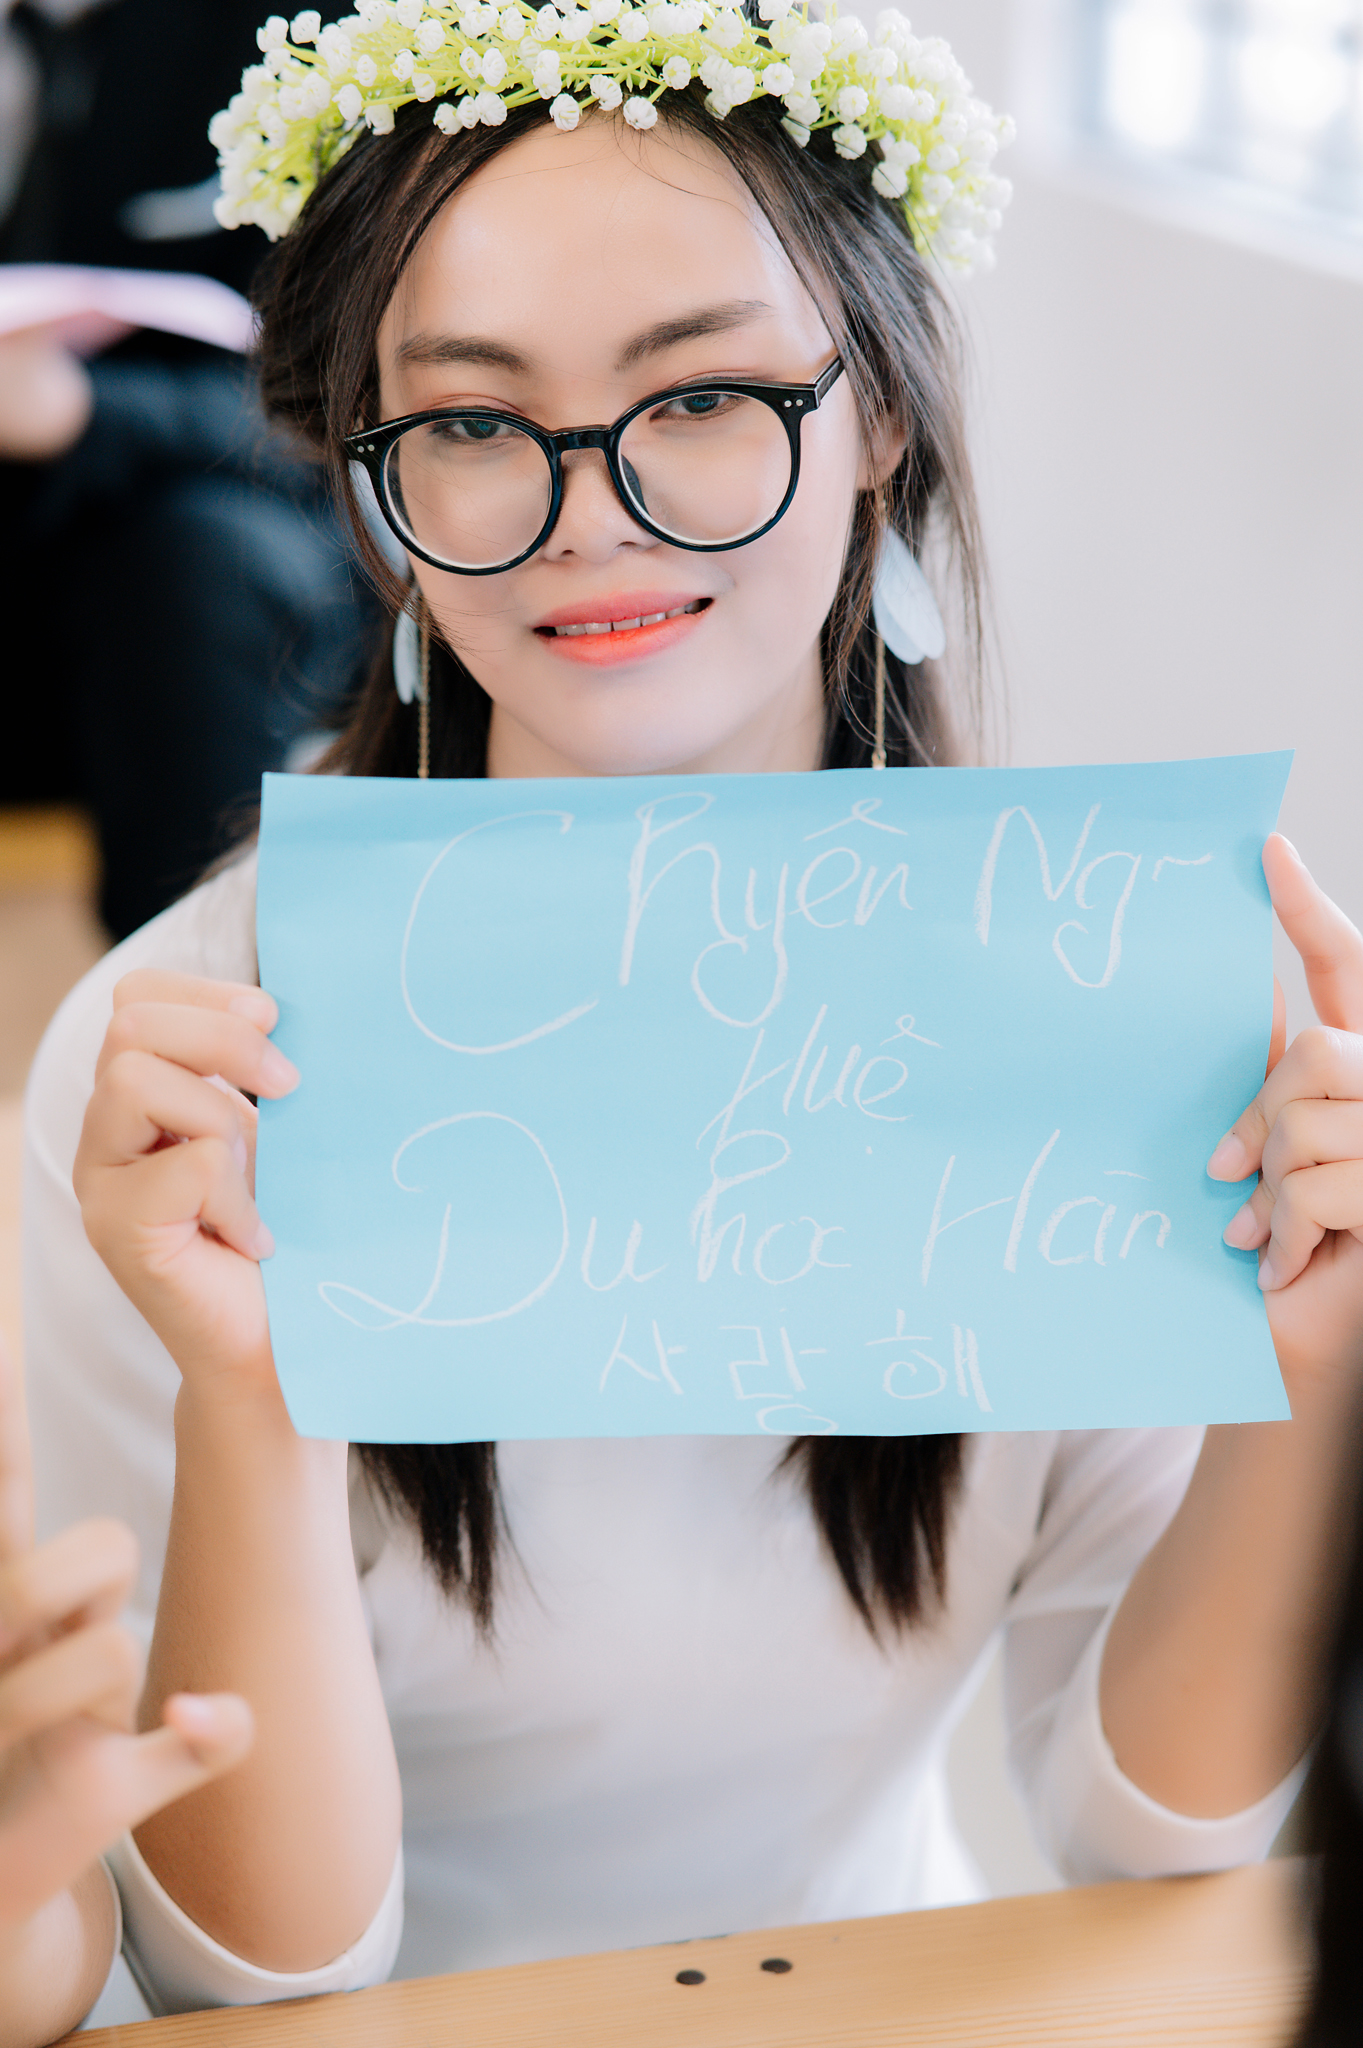 Chuyên Ng~
Huệ
Du học Hàn
사랑해